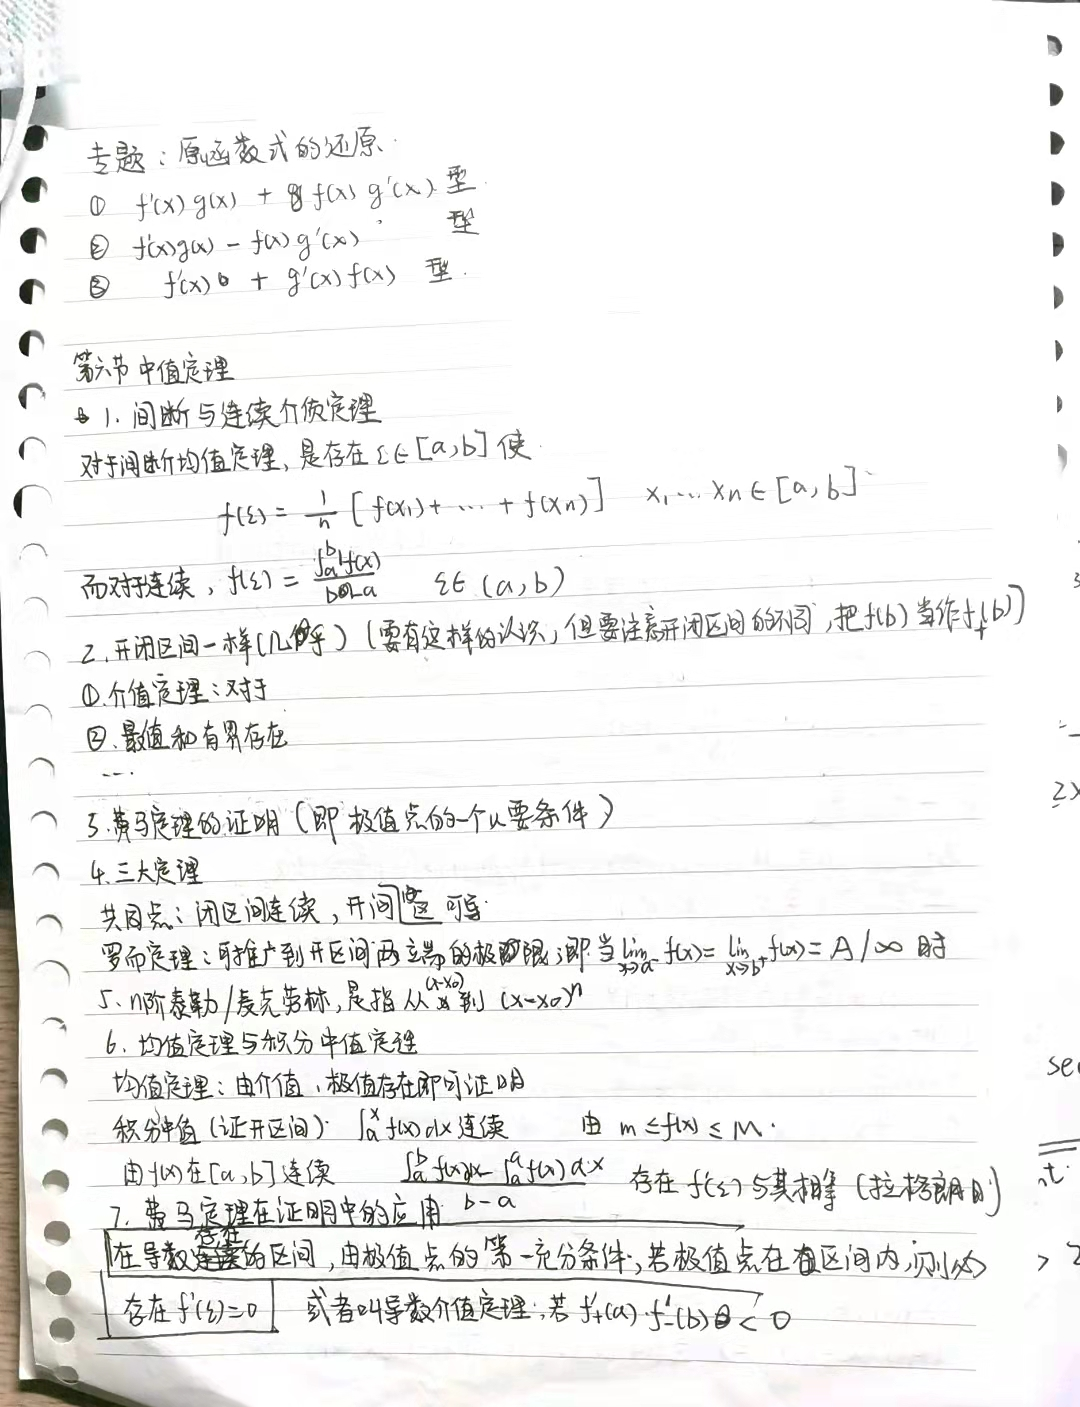 专题：原函数式的还原.
① f'(x)g(x) + f(x)g'(x) 型.
② f'(x)g(x) - f(x)g'(x) 型
③ f'(x) + g'(x)f(x) 型.
第六节 中值定理
1. 间断与连续介值定理
对于间断均值定理, 是存在 ξ∈[a,b] 使.
f(ξ) = 1/n [f(x1)+ … + f(xn)] x1 … xn ∈ [a,b]
而对于连续, f(ξ) = ∫_a^b f(x) / b-a ξ∈(a,b)
2. 开闭区间一样(几乎) (要有这样的认识, 但要注意开闭区间的不同, 把f(b)当作f+(b))
①. 介值定理：对于
②. 最值和有界存在
...
3. 费马定理的证明 (即极值点的一个必要条件)
4. 三大定理
共同点：闭区间连续, 开间区可导
罗而定理：可推广到开区间两端的极限, 即当 lim x→a- f(x) = lim x→b+ f(x) = A/∞ 时
5. n阶泰勒/麦克劳林, 是指从 (x-x0) 到 (x-x0)^n
6. 均值定理与积分中值定理
均值定理：由介值、极值存在即可证明
积分中值(证开区间) ∫_a^x f(x)dx 连续 由 m ≤ f(x) ≤ M.
由f(x)在[a,b]连续 ∫_a^b f(x)dx - ∫_a^a f(x)dx / b-a 存在 f(ξ) 与其相等 (拉格朗日)
7. 费马定理在证明中的应用
在导数存在的区间, 由极值点的第一充分条件, 若极值点在区间内, 则必
存在 f'(ξ)=0 或者叫导数介值定理; 若 f'+(a)·f'-(b) < 0
2x
sec
nt.
> 2